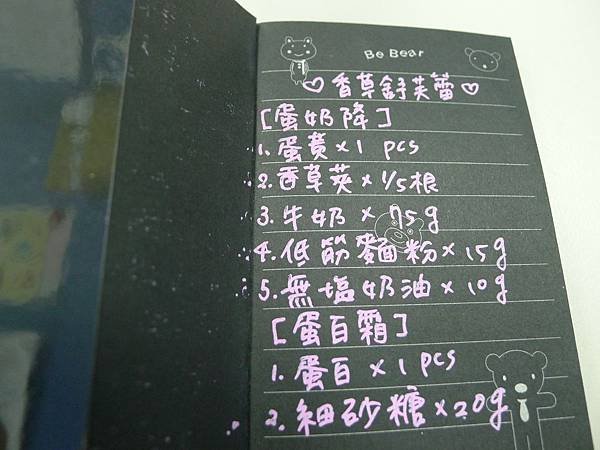 Be Bear
♡香草舒芙蕾♡
[蛋奶降]
1. 蛋黃×1 pcs
2. 香草莢×1/5根
3. 牛奶×75g
4. 低筋麵粉×15g
5. 無塩奶油×10g
[蛋白霜]
1. 蛋白×1 pcs
2. 細砂糖×20g